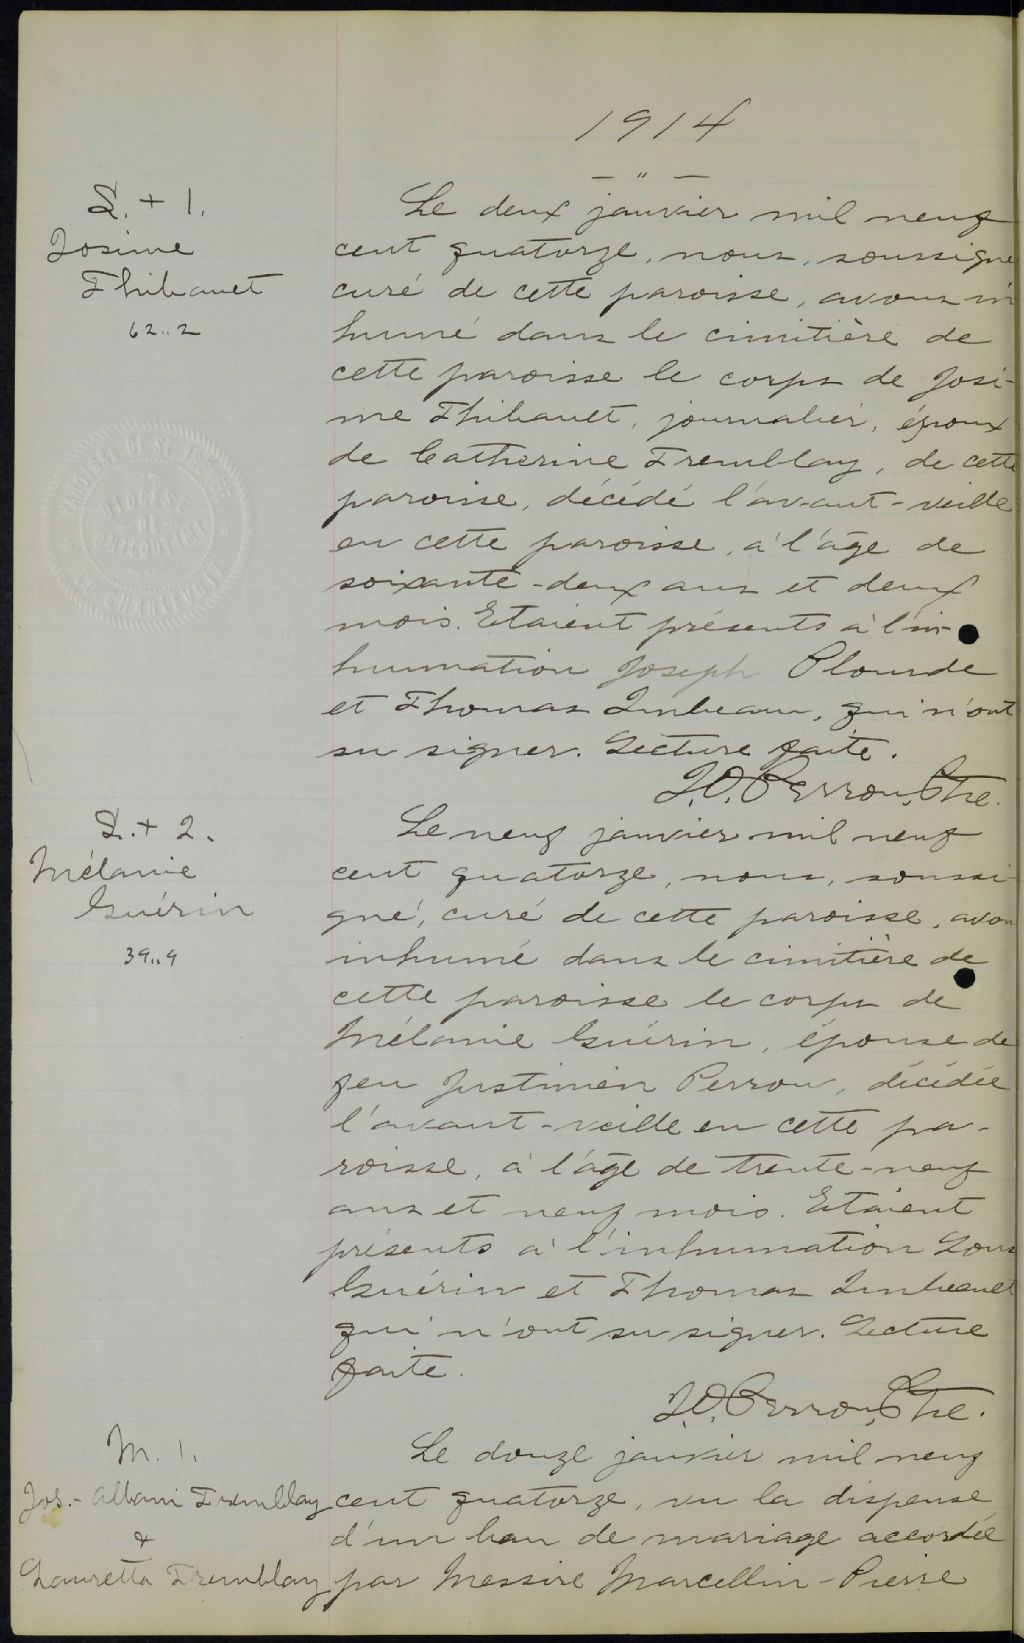 1914
— " —
S. + 1.
Josime
Thibault
62..2
Le deux janvier mil neuf
cent quatorze, nous, soussigné
curé de cette paroisse, avons in
humé dans le cimitière de
cette paroisse le corps de Josi-
me Thibault, journalier, époux
de Catherine Tremblay, de cette
paroisse, décédé l'avant-veille
en cette paroisse, à l'âge de
soixante-deux ans et deux
mois. Etaient présents à l'in-
humation Joseph Plourde
et Thomas Imbeau, qui n'ont
su signer. Lecture faite.
J.O. Perron, Ptre.
S. + 2.
Mélanie
Guérin
39..9
Le neuf janvier mil neuf
cent quatorze, nous, soussi-
gné, curé de cette paroisse, avon
inhumé dans le cimitière de
cette paroisse le corps de
Mélanie Guérin, épouse de
feu Justinien Perron, décédée
l'avant-veille en cette pa-
roisse, à l'âge de trente-neuf
ans et neuf mois. Etaient
présents à l'inhumation Louis
Guérin et Thomas Imbeault
qui n'ont su signer. Lecture
faite.
J.O. Perron, Ptre.
M. 1.
Jos.-Albani Tremblay
&
Lauretta Tremblay
Le douze janvier mil neuf
cent quatorze, vu la dispense
d'un ban de mariage accordée
par Messire Marcellin-Pierre
DIOCÈSE
DE
CHICOUTIMI